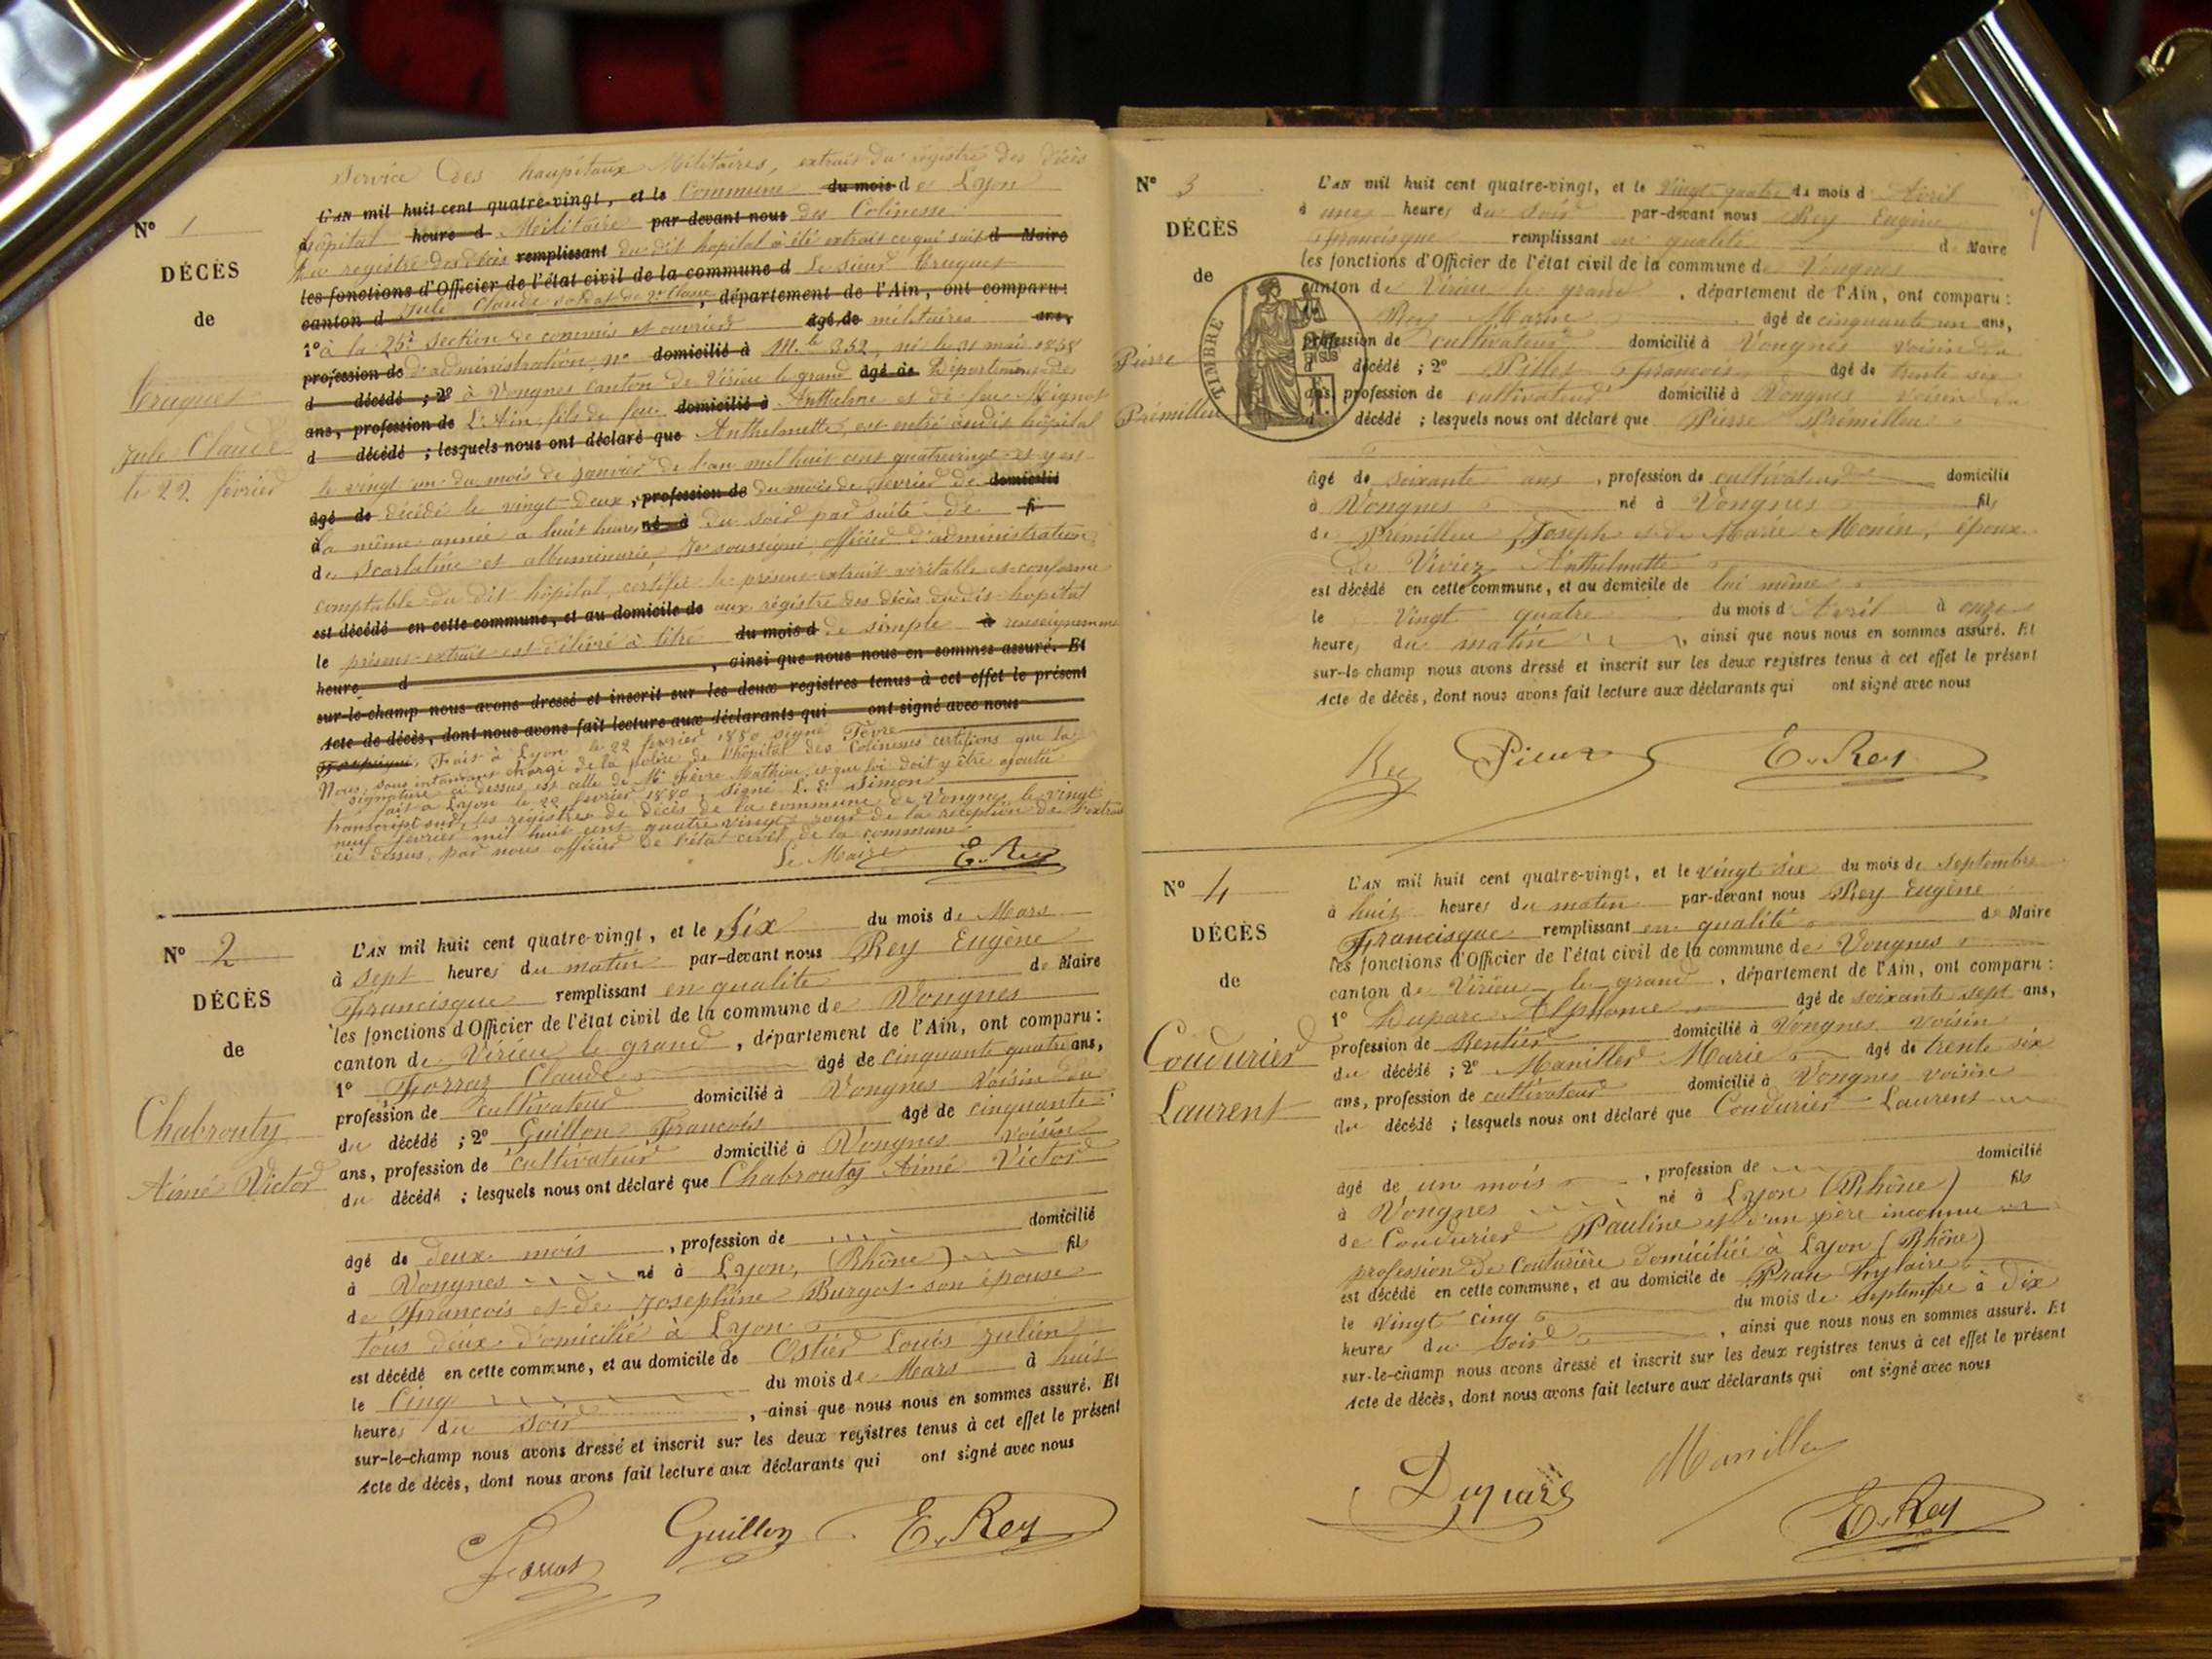 Service des haupitaux Militaires, extrait du régistre des décès
N° 1
L'AN mil huit cent quatre-vingt, et le Commune du mois d de Lyon
hôpital heure d Militaire par-devant nous des Colinesse
DÉCÈS
du registre des décès remplissant du dit hopital à été extrait ce qui suit d Maire
les fonctions d'Officier de l'état civil de la commune d Le sieur Cruques
de
canton d Jule Claude soldat de 2e Classe, département de l'Ain, ont comparu:
1° à la 25e Section de commis et ouvriers âgé de militaires ans,
profession de d'administration, n° domicilié à M.le 352, né le 31 mai 1858
d décédé ; 2° à Vongnes canton de Virieu le grand âgé de Département de
Cruques
ans, profession de L'Ain, fils de feu domicilié à Anthelme et de feu Mignot
Jule Claude
d décédé ; lesquels nous ont déclaré que Anthelmette, est entré au dit hôpital
le 22 février
le vingt un du mois de janvier de l'an mil huit cent quatrevingt et y est
âgé de décédé le vingt deux, profession de du mois de fevrier de domicilié
la même année a huit heures né à du soir par suite de fi
de Scarlatine et albuminarie, Je soussigné officier d'administration
comptable du dit hôpital, certifie le présent extrait véritable et conforme
est décédé en cette commune, et au domicile de aux régistre des décès du dit hopital
le présent extrait est délivré à titre du mois d de simple à renseignement
heure d , ainsi que nous nous en sommes assuré. Et
sur-le-champ nous avons dressé et inscrit sur les deux registres tenus à cet effet le présent
Acte de décès, dont nous avons fait lecture aux déclarants qui ont signé avec nous
Fait à Lyon le 22 fevrier 1880 signé Fèvre
Nous, sous intendant chargé de la police de l'hôpital des Colinesses certifions que la
signature ci dessus est celle de Mr Fèvre Mathieu, et que foi doit y être ajoutée
fait à Lyon le 22 fevrier 1880, signé L. E. Simon
transcript sur les régistres de décès de la commune de Vongnes le vingt
neuf fevrier mil huit cent quatre vingt, jour de la réception de l'extrait
ci dessus, par nous officier de l'état civil de la commune
Le Maire E. Rey
N° 2
L'AN mil huit cent quatre-vingt, et le Six du mois de Mars
à sept heures du matin par-devant nous Rey Eugène
DÉCÈS
Francisque remplissant en qualité de Maire
les fonctions d'Officier de l'état civil de la commune de Vongnes
de
canton de Virieu le grand, département de l'Ain, ont comparu:
1° Forraz Claude âgé de cinquante quatre ans,
profession de cultivateur domicilié à Vongnes Voisin du
Chabrouty
du décédé ; 2° Guillon François âgé de cinquante
ans, profession de cultivateur domicilié à Vongnes voisin
Aimé Victor
du décédé ; lesquels nous ont déclaré que Chabrouty Aimé Victor
domicilié
âgé de deux mois, profession de
à Vongnes né à Lyon, (Rhône) fils
de François et de Joséphine Burgot son épouse
tous deux domicilié à Lyon
est décédé en cette commune, et au domicile de Ostier Louis Julien
le Cinq du mois de Mars à huit
heures du soir, ainsi que nous nous en sommes assuré. Et
sur-le-champ nous avons dressé et inscrit sur les deux registres tenus à cet effet le présent
Acte de décès, dont nous avons fait lecture aux déclarants qui ont signé avec nous
Guillon E. Rey
N° 3
L'AN mil huit cent quatre-vingt, et le Vingt quatre du mois d Avril
à une heures du soir par-devant nous Rey Eugène
DÉCÈS
Francisque remplissant en qualité de Maire
les fonctions d'Officier de l'état civil de la commune de Vongnes
de
canton de Virieu le grand, département de l'Ain, ont comparu:
TIMBRE
Rey Marin âgé de cinquante un ans,
profession de cultivateur domicilié à Vongnes voisin du
Pierre
d décédé ; 2° Pillet François âgé de trente six
ans, profession de cultivateur domicilié à Vongnes voisin du
Prémillieu
d décédé ; lesquels nous ont déclaré que Pierre Prémillieu
âgé de soixante ans, profession de cultivateur domicilié
à Vongnes né à Vongnes fils
de Prémillieu Joseph et de Marie Monin, époux
de Viviez Anthelmette
est décédé en cette commune, et au domicile de lui même
le Vingt quatre du mois d Avril à onze
heures du matin, ainsi que nous nous en sommes assuré. Et
sur-le champ nous avons dressé et inscrit sur les deux registres tenus à cet effet le présent
Acte de décès, dont nous avons fait lecture aux déclarants qui ont signé avec nous
Rey E. Rey
N° 4
L'AN mil huit cent quatre-vingt, et le vingt six du mois de Septembre
à huit heures du matin par-devant nous Rey Eugène
DÉCÈS
Francisque remplissant en qualité de Maire
les fonctions d'Officier de l'état civil de la commune de Vongnes
de
canton de Virieu le grand, département de l'Ain, ont comparu:
1° Duparc Alphonse âgé de soixante sept ans,
Coudurier
profession de Rentier domicilié à Vongnes voisin
du décédé ; 2° Manillier Marie âgé de trente six
Laurent
ans, profession de cultivateur domicilié à Vongnes voisin
du décédé ; lesquels nous ont déclaré que Coudurier Laurent
domicilié
âgé de un mois, profession de
à Vongnes né à Lyon (Rhône) fils
de Coudurier Pauline et d'un père inconnu
profession de Couturière domiciliée à Lyon (Rhône)
est décédé en cette commune, et au domicile de Prau hylaire
le vingt cinq du mois de Septembre à Dix
heures du soir, ainsi que nous nous en sommes assuré. Et
sur-le-champ nous avons dressé et inscrit sur les deux registres tenus à cet effet le présent
Acte de décès, dont nous avons fait lecture aux déclarants qui ont signé avec nous
Duparc Manillier
E. Rey